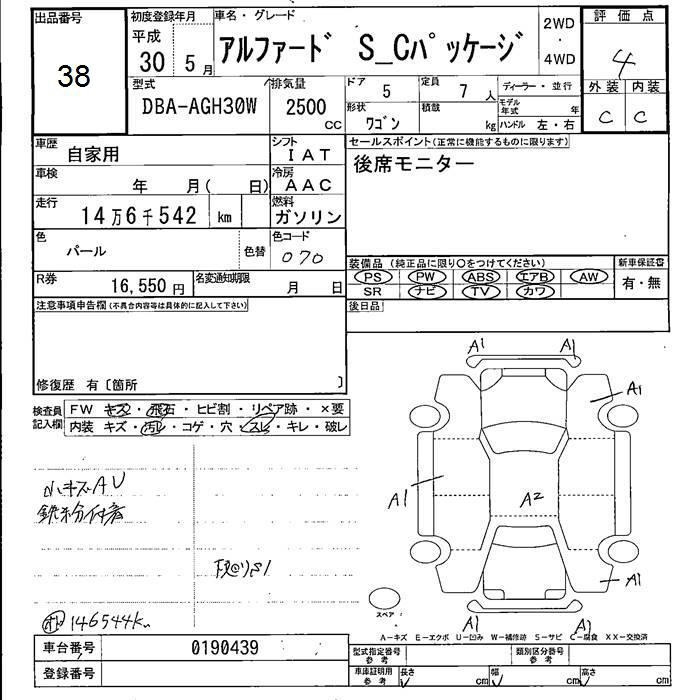 出品番号
38
初度登録年月
平成
30 5 月
車名・グレード
アルファード S_Cパッケージ
2WD
・
4WD
評価点
4
外装 内装
C C
型式
DBA-AGH30W
排気量
2500
CC
ドア
5
定員
7 人
形状
ワゴン
積載
kg
ディーラー・並行
モデル年式 年
ハンドル 左・右
車歴
自家用
シフト
IAT
車検
年 月( 日)
冷房
AAC
走行
14万6千542 km
燃料
ガソリン
色
パール
色替
色コード
070
セールスポイント(正常に機能するものに限ります)
後席モニター
R券
16,550 円
名変通知期限
月 日
装備品(純正品に限り○をつけてください)
PS PW ABS エアB AW
SR ナビ TV カワ
新車保証書
有・無
後日品
注意事項申告欄(不具合内容等は具体的に記入して下さい)
修復歴 有〔箇所 〕
検査員記入欄
FW キズ・飛石・ヒビ割・リペア跡・×要
内装 キズ・汚レ・コゲ・穴・スレ・キレ・破レ
小キズAU
鉄粉付着
オド146544km
A1 A1
A1
A1
A2
A1
A1 A1
スペア
A-キズ E-エクボ U-凹み W-補修跡 S-サビ C-腐食 XX-交換済
車台番号
0190439
登録番号
型式指定番号
参考
類別区分番号
参考
車庫証明用
参考
長さ cm
幅 cm
高さ cm